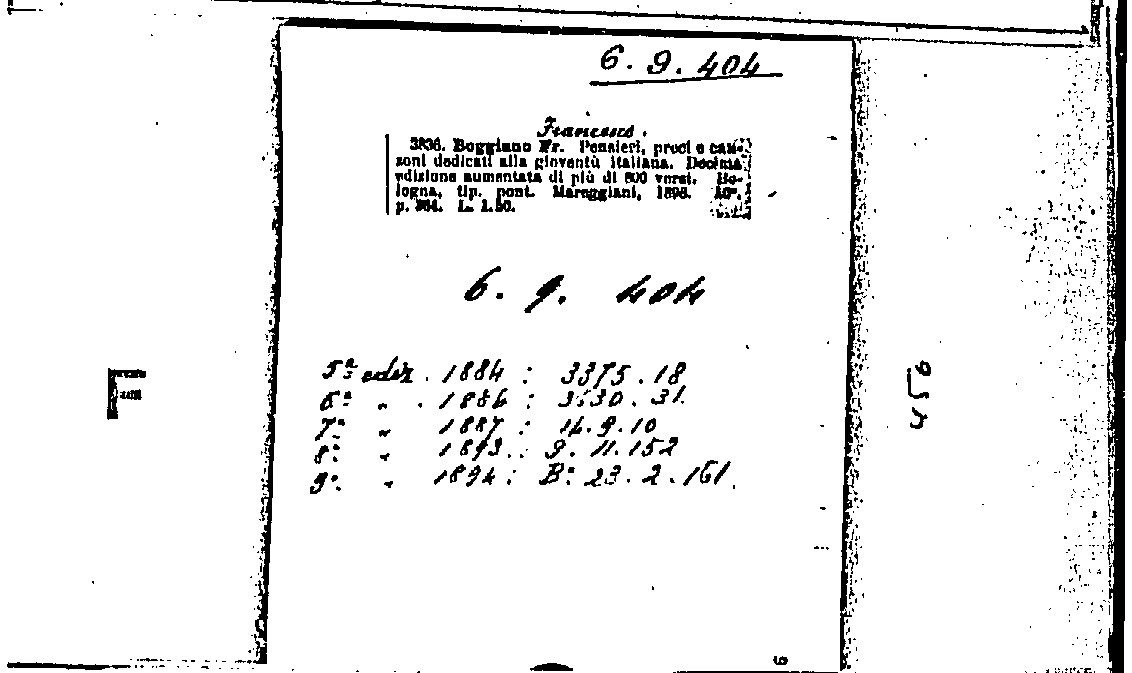 6. 9. 404
Francesco.
3836. Boggiano Fr. Pensieri, preci e can-
zoni dedicati alla gioventù italiana. Decima
edizione aumentata di più di 800 versi. Bo-
logna, tip. pont. Mareggiani, 1898. 16º,
p. 264. L. 1.20.
6. 9. 404
5ª ediz. 1884 : 3375.18
6ª „ . 1886 : 3530.31.
7ª „ 1887 : 14.9.10
8ª „ 1893.. 9.11.152
9ª. „ 1894 : Bª 23.2.161.
459